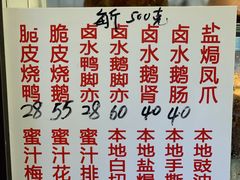 每斤 500克
脆皮烧鸭 28
脆皮烧鹅 55
卤水鸭脚亦 28
卤水鹅脚亦 60
卤水鹅肾 40
卤水鹅肠 40
盐焗凤爪
蜜汁梅
蜜汁花
蜜汁排
本地白切
本地盐焗
本地手撕
本地豉油